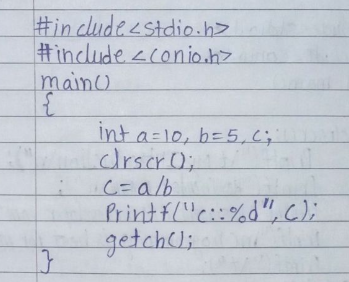 #include<stdio.h>
#include<conio.h>
main()
{
int a=10, b=5, c;
clrscr();
c=a/b
Printf("c::%d", c);
getch();
}